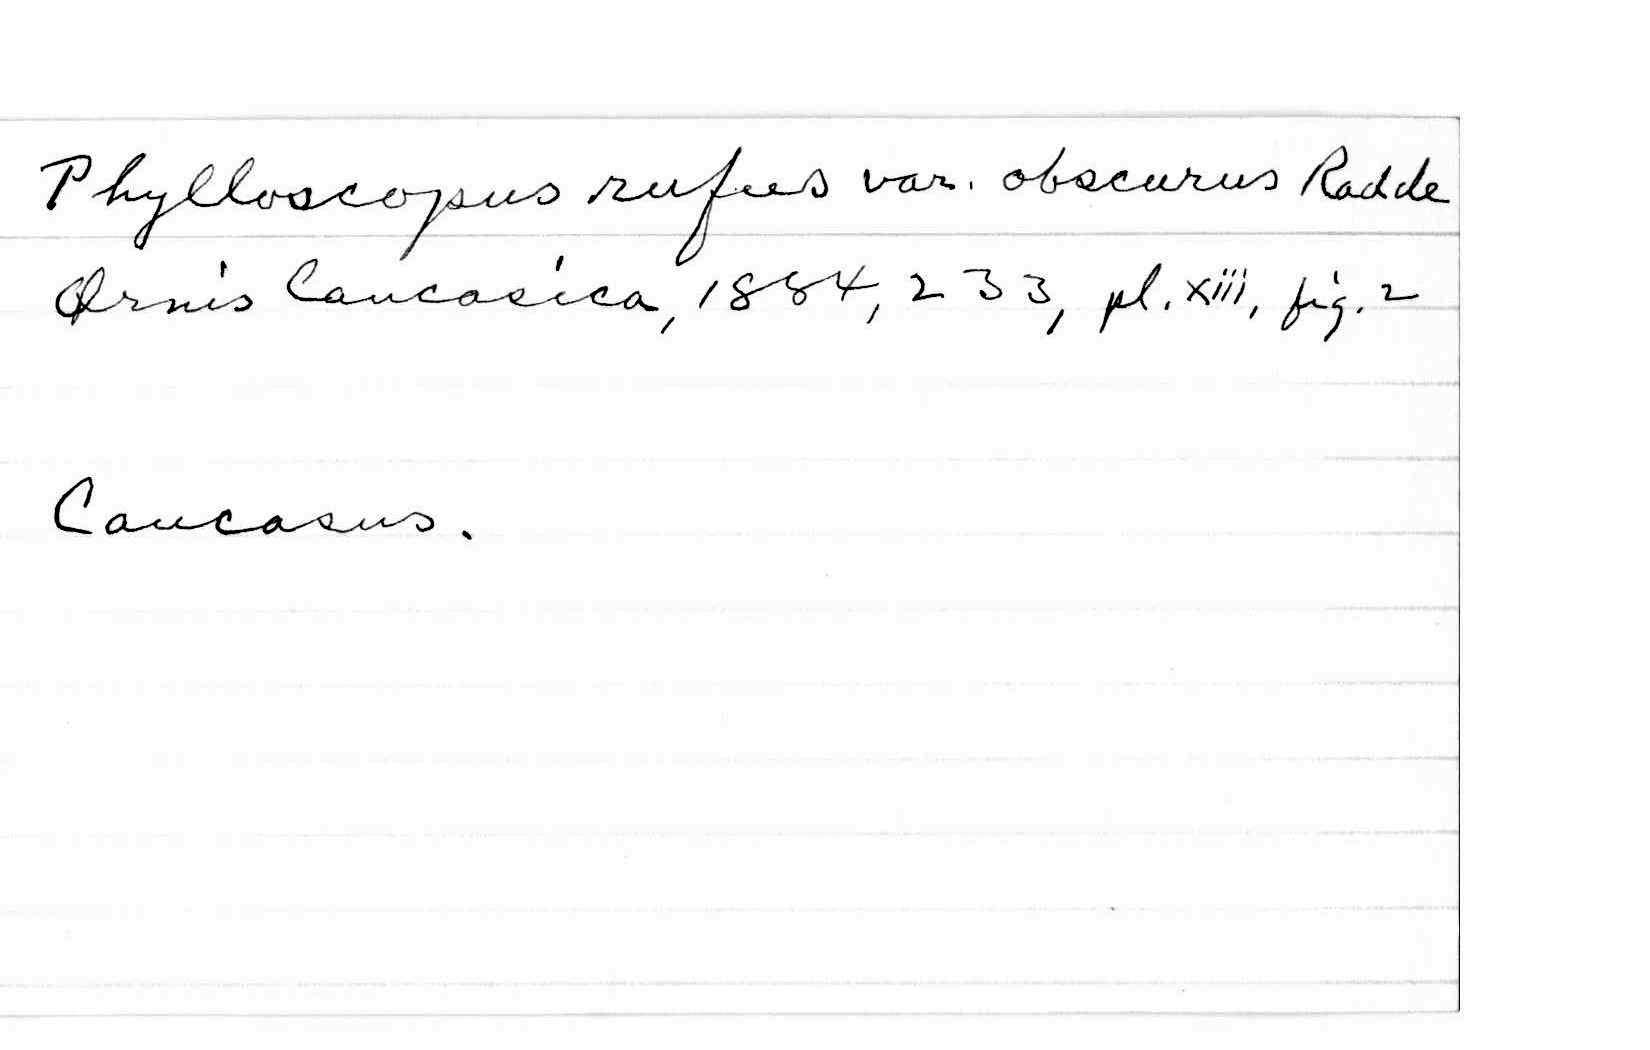 Phylloscopus rufus var. obscurus Radde
Ornis Caucasica, 1884, 233, pl. xiii, fig. 2
Caucasus.